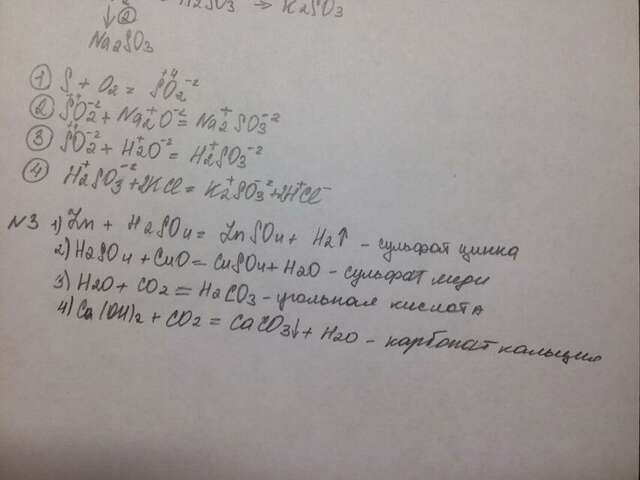 H2SO3 → K2SO3
↓②
Na2SO3
① S + O2 = S⁺⁴O2⁻²
② S⁺⁴O2⁻² + Na2⁺O⁻² = Na2⁺SO3⁻²
③ S⁺⁴O2⁻² + H2⁺O⁻² = H2⁺SO3⁻²
④ H2⁺SO3⁻² + 2KCl = K2⁺SO3⁻² + 2H⁺Cl⁻
N3 1) Zn + H2SO4 = ZnSO4 + H2↑ – сульфат цинка
2) H2SO4 + CuO = CuSO4 + H2O – сульфат меди
3) H2O + CO2 = H2CO3 – угольная кислота
4) Ca(OH)2 + CO2 = CaCO3↓ + H2O – карбонат кальция